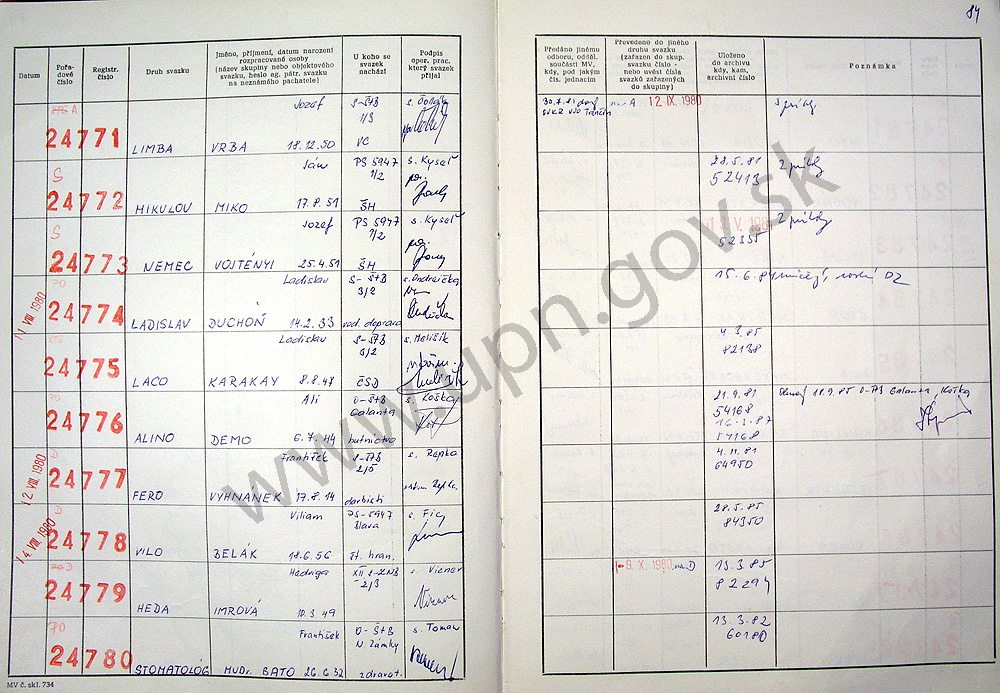 84
Datum
Pořadové číslo
Registr. číslo
Druh svazku
Jméno, příjmení, datum narození rozpracované osoby (název skupiny nebo objektového svazku, heslo ag. pátr. svazku na neznámého pachatele)
U koho se svazek nachází
Podpis oper. prac. který svazek přijal
Předáno jinému odboru, odděl. součásti MV, kdy, pod jakým čís. jednacím
Převedeno do jiného druhu svazku (zařazen do skup. svazku číslo - nebo uvést čísla svazků zařazených do skupiny)
Uloženo do archivu kdy, kam, archivní číslo
Poznámka
A 24771 LIMBA Jozef VRBA 18.12.50 S-ŠTB 1/3 VC
12 IX 1980
S 24772 MIKULOV Ján MIKO 17.8.51 PS 5947 1/2 ŠH s. Kyseľ
28.5.81 52413 2 príl.
S 24773 NEMEC Jozef VOJTÉNYI 25.4.51 PS 5947 1/2 ŠH s. Kyseľ
52355 2 príl.
11 VIII 1980 24774 LADISLAV Ladislav DUCHOŇ 14.2.33 S-ŠtB 3/2 vod. doprava s. Ondrejička
24775 LACO Ladislav KARAKAY 8.8.47 S-ŠTB 3/2 ČSD s. Melišík
4.3.85 82138
24776 ALINO Ali DEMO 6.7.44 O-ŠtB Galanta s. Koška
21.9.81 54168 16.3.87 54168 18.9.85 Galanta, Koška
12 VIII 1980 24777 FERO František VYHNÁNEK 17.8.14 S-ŠTB 2/5 s. Repka
4.11.81 64950
14 VIII 1980 24778 VILO Viliam BELÁK 18.6.56 PS-5947 št. hran. s. Fic
28.5.85 84350
24779 HEDA Hedviga IMROVÁ 10.3.49 2/3 s. Viener
-9. X. 1980 na D 13.3.85 82294
PO 24780 STOMATOLÓG František MUDr. BATO 26.6.32 O-ŠtB N. Zámky zdravot. s. Toman
13.3.82 60180
MV č. skl. 734
www.upn.gov.sk